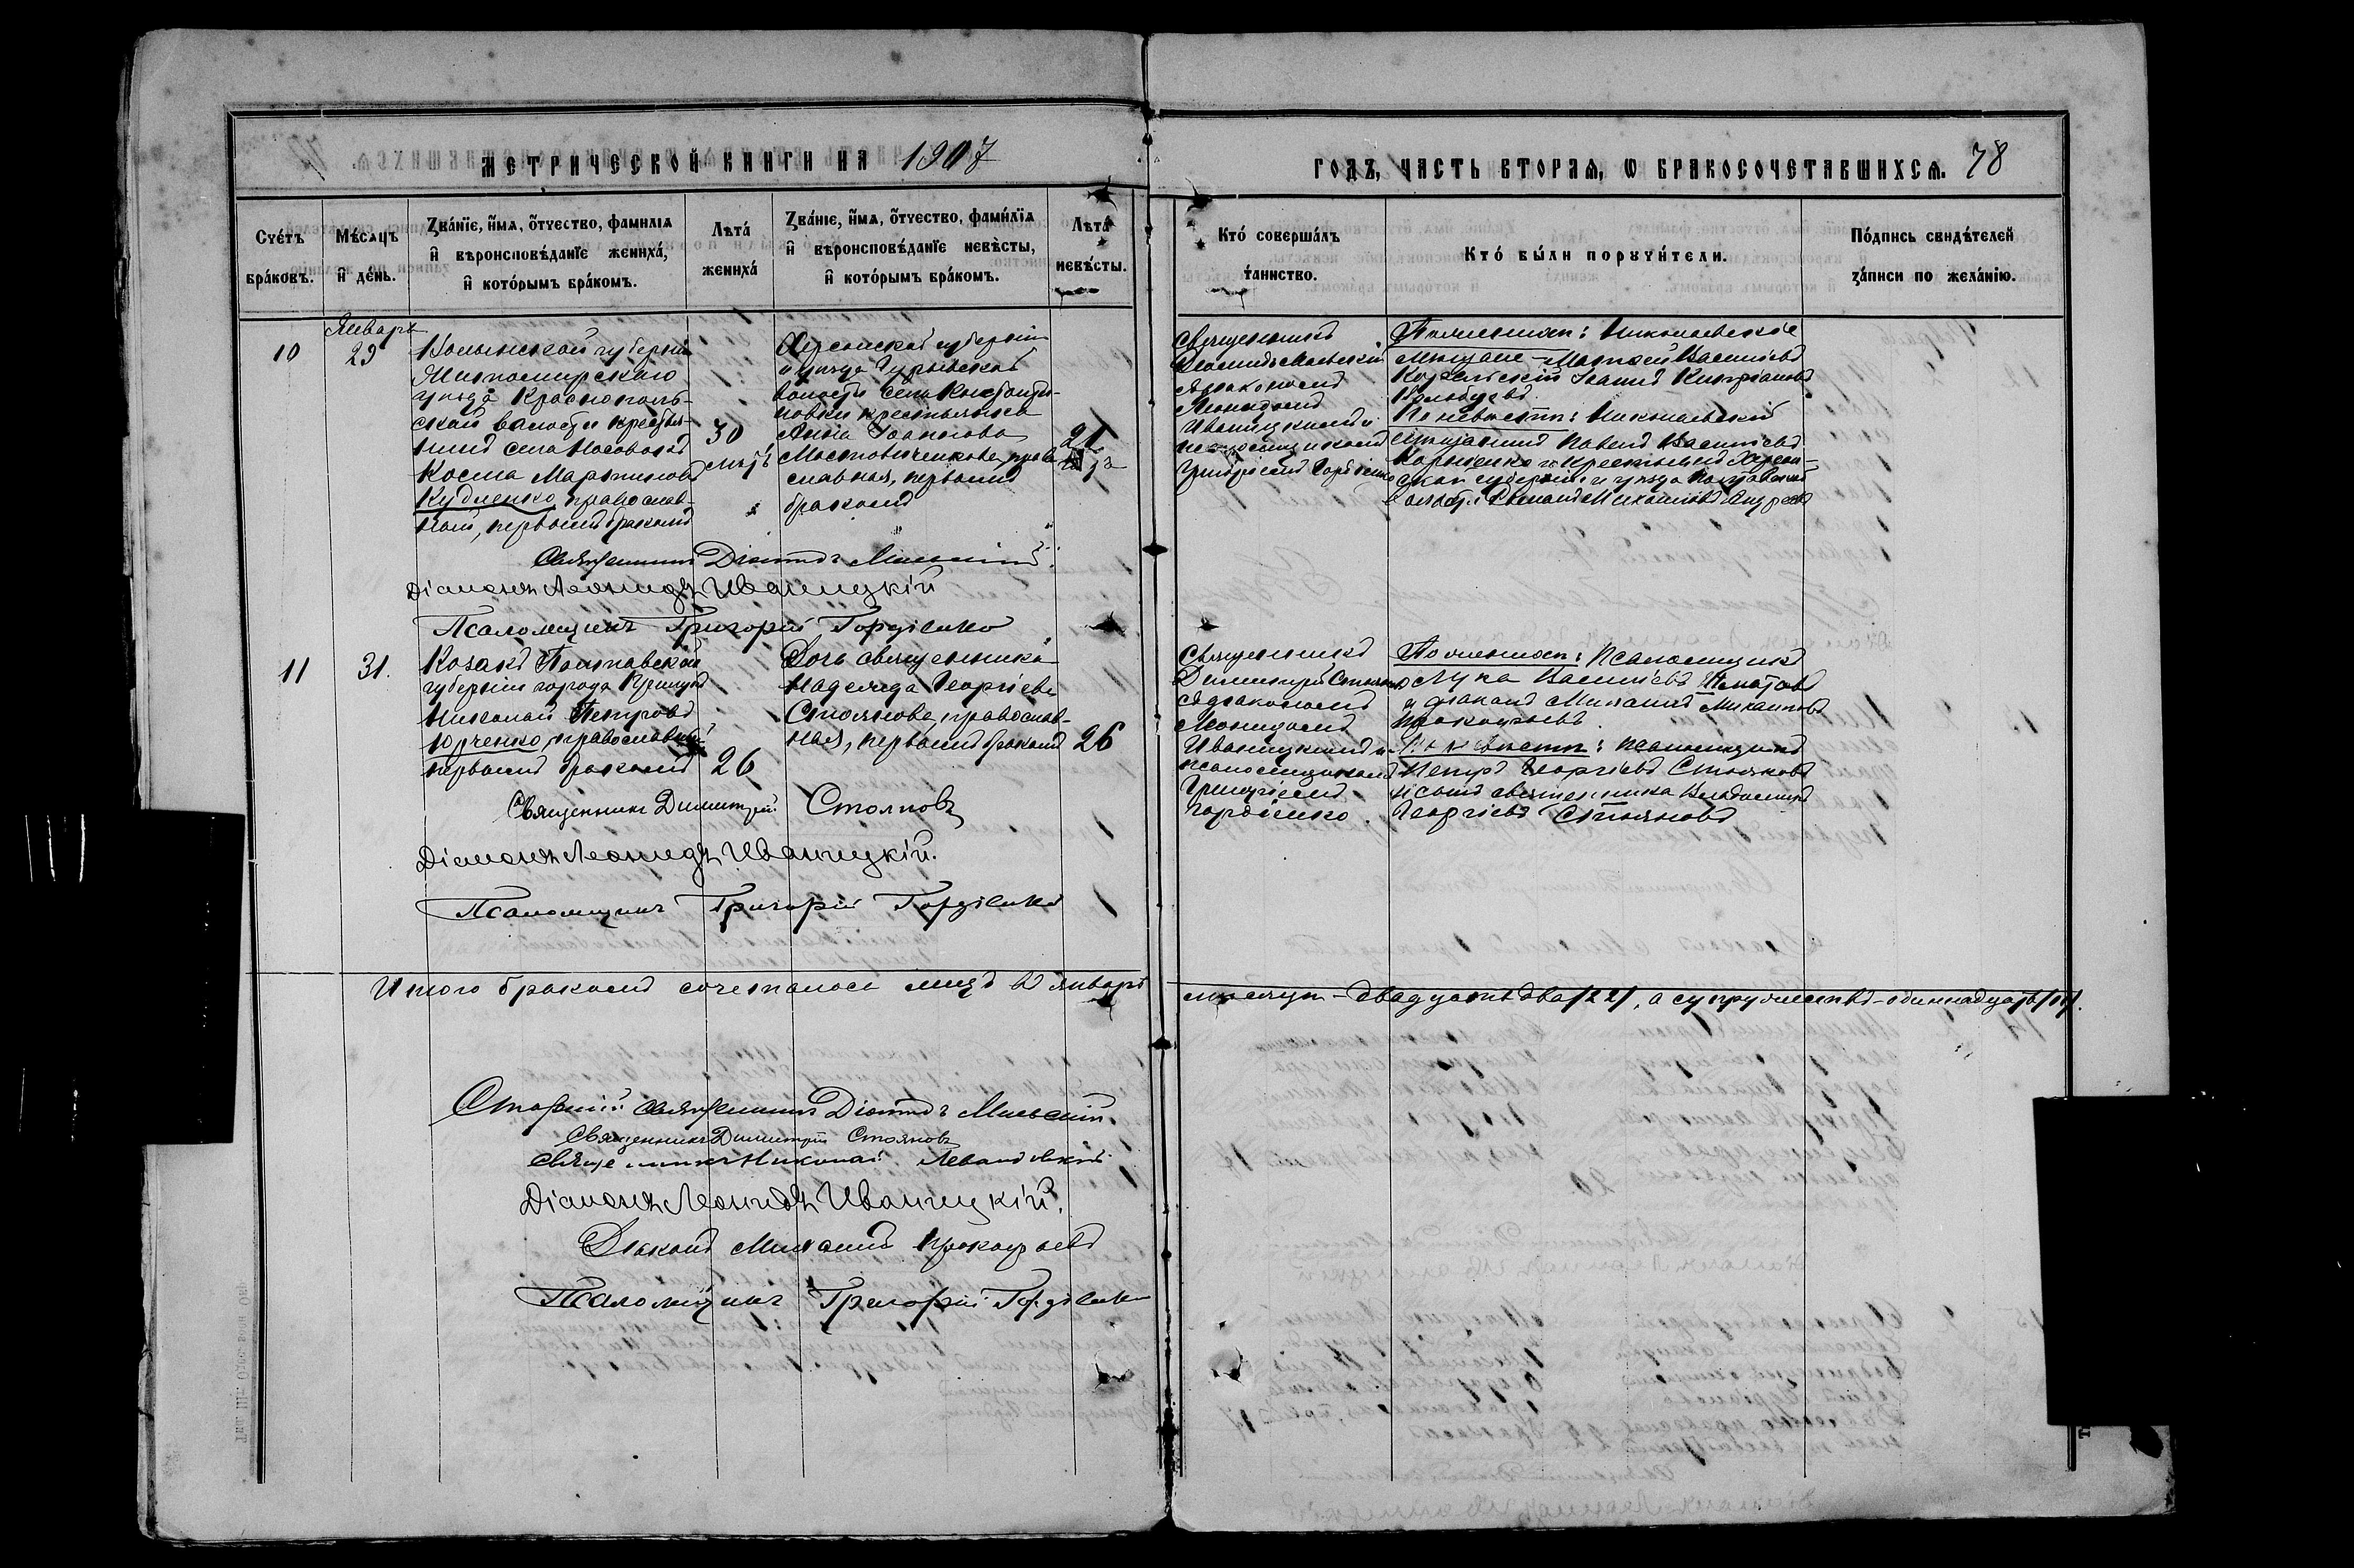 МЕТРИЧЕСКОЙ КНИГИ НА 1907
ГОДЪ, ЧАСТЬ ВТОРАЯ, Ѡ БРАКОСОЧЕТАВШИХСЯ. 78
Счетъ браковъ.
Мѣсяцъ и день.
Званіе, имя, отчество, фамилія
и вѣроисповѣданіе жениха,
и которымъ бракомъ.
Лѣта жениха
Званіе, имя, отчество, фамилія
и вѣроисповѣданіе невѣсты,
и которымъ бракомъ.
Лѣта невѣсты.
Кто совершалъ таинство.
Кто были поручители.
Подпись свидѣтелей
записи по желанію.
10
Январь
29
Волынской губерніи
Житомирскаго
уѣзда Краснополь-
ской волости кресть-
янинъ села Носовокъ
Косма Мартиновъ
Кудленко, православ-
ный, первымъ бракомъ
30
лѣтъ
Херсонской губерніи
и уѣзда
волости села Константи-
новки крестьянка
Анна Іоаннова
правo-
славная, первымъ
бракомъ
21
Священникъ
съ діакономъ
Леонидомъ
Иваницкимъ и
псаломщикомъ
Григоріемъ Гордіенко
По женихѣ: Николаевскіе
мѣщане - Матѳей Васильевъ
Іоаннъ Кипріановъ
По невѣстѣ: Николаевскій
мѣщанинъ Павелъ Васильевъ
и крестьянинъ Херсон-
ской губерніи и уѣзда
волости Михаиловъ
Священникъ
Діаконъ Леонидъ Иваницкій
Псаломщикъ Григорій Гордіенко
11
31.
Козакъ Полтавской
губерніи города
Николай Петровъ
Юрченко, православный
первымъ бракомъ
26
Дочь священника
Надежда Георгіева
Стоянова, православ-
ная, первымъ бракомъ
26
Священникъ
Димитрій Стояновъ
съ діакономъ
Леонидомъ
Иваницкимъ и
псаломщикомъ
Григоріемъ
Гордіенко.
По женихѣ: Псаломщикъ
Лука Васильевъ
и діаконъ Михаилъ Михаиловъ
Прокофьевъ.
По невѣстѣ: псаломщикъ
Петръ Георгіевъ Стояновъ
и сынъ священника Владимиръ
Георгіевъ Стояновъ
Священникъ Димитрій Стояновъ
Діаконъ Леонидъ Иваницкій.
Псаломщикъ Григорій Гордіенко
Итого бракомъ сочеталось лицъ въ январѣ
мѣсяцѣ - двадцать два /22/, а супружествъ - одиннадцать /11/.
Старшій священникъ
Священникъ Димитрій Стояновъ
Священникъ Николай Левандовскій
Діаконъ Леонидъ Иваницкій.
Діаконъ Михаилъ Прокофьевъ
Псаломщикъ Григорій Гордіенко